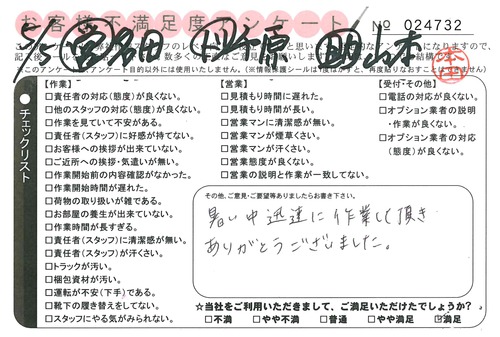 お客様不満足度アンケート No 024732
【作業】
□責任者の対応(態度)が良くない。
□他のスタッフの対応(態度)が良くない。
□作業を見ていて不安がある。
□責任者(スタッフ)に好感が持てない。
□お客様への挨拶が出来ていない。
□ご近所への挨拶・気遣いが無い。
□作業開始前の内容確認がなかった。
□作業開始時間が遅れた。
□荷物の取り扱いが雑である。
□お部屋の養生が出来ていない。
□作業時間が長すぎる。
□責任者(スタッフ)に清潔感が無い。
□責任者(スタッフ)が汗くさい。
□トラックが汚い。
□梱包資材が汚い。
□運転が不安(下手)である。
□靴下の履き替えをしてない。
□スタッフにやる気がみられない。
【営業】
□見積もり時間に遅れた。
□見積もり時間が長い。
□営業マンに清潔感が無い。
□営業マンが煙草くさい。
□営業マンが汗くさい。
□営業態度が良くない。
□営業の説明と作業が一致してない。
【受付・その他】
□電話の対応が良くない。
□オプション業者の説明
・作業が良くない。
□オプション業者の対応
(態度)が良くない。
チェックリスト
その他、ご意見・ご要望等ありましたらお書き下さい。
暑い中迅速に作業して頂き
ありがとうございました。
★当社をご利用いただきまして、ご満足いただけたでしょうか?
□不満 □やや不満 □普通 □やや満足 ☑満足